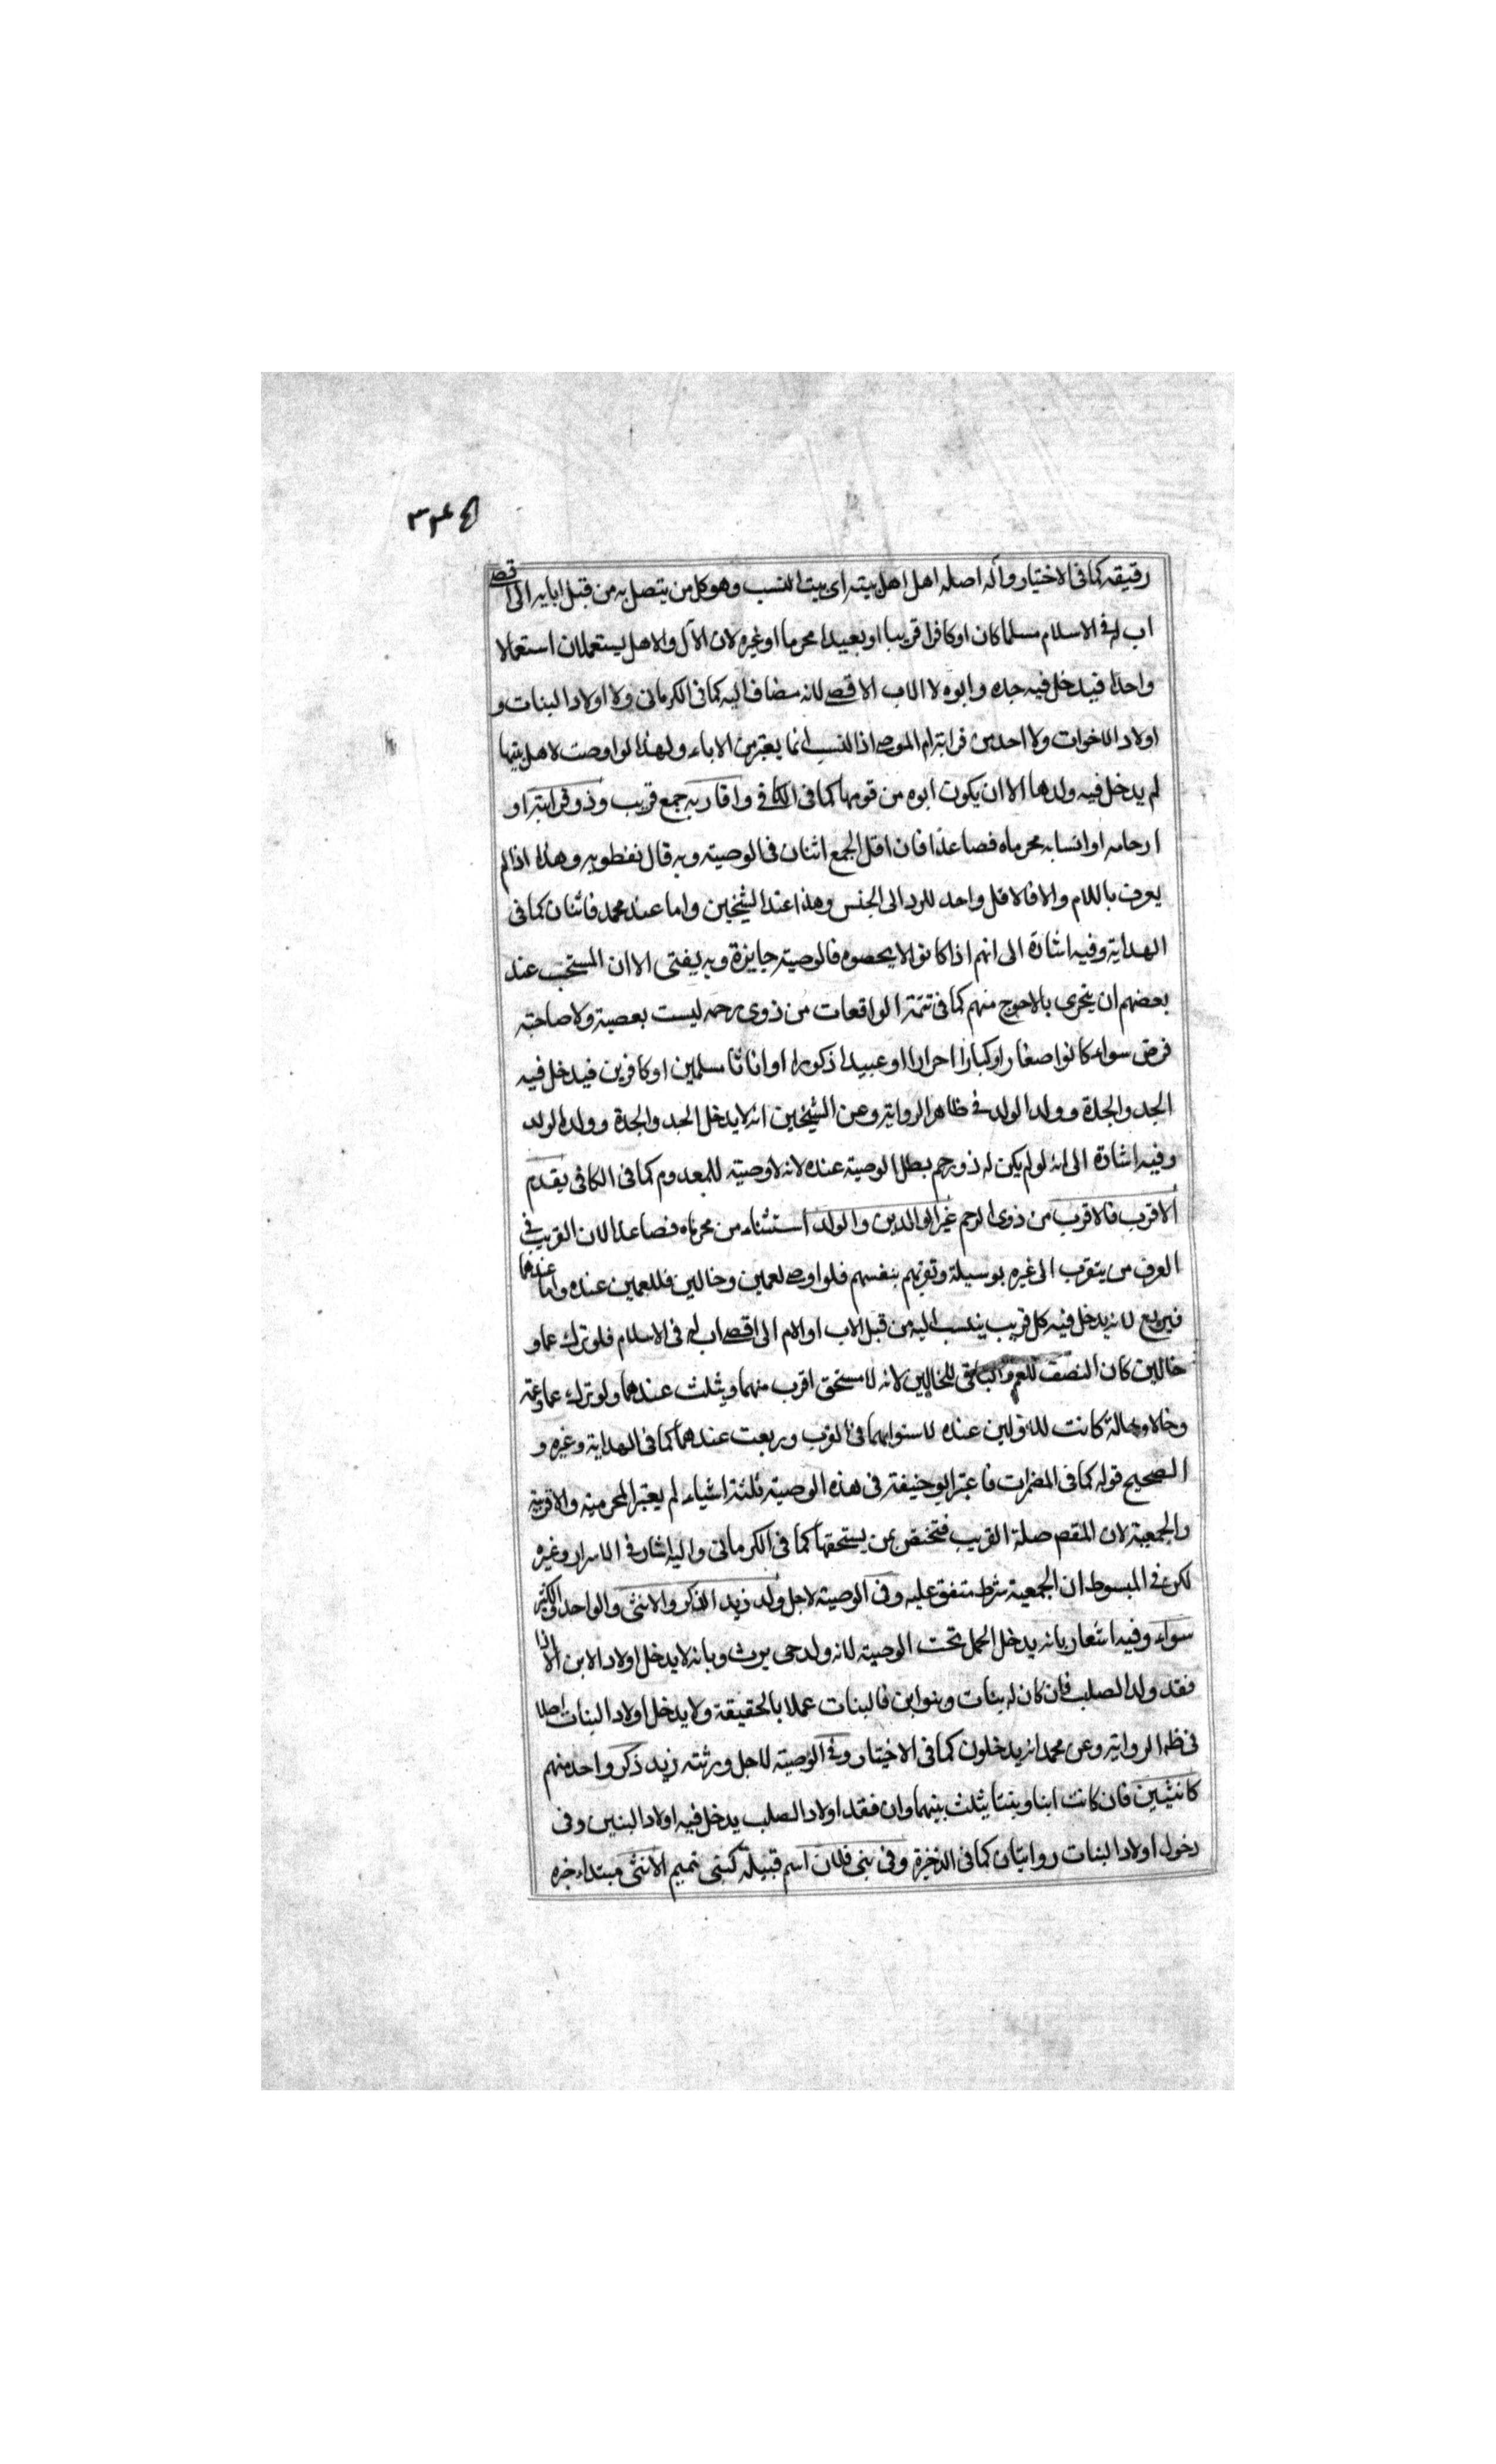 رقيقه كما فى الاختيار وآله اصله اهل اهل بيته اى بيت النسب وهو كل من يتصل به من قبل ابايه الى اقصى
اب له فى الاسلام مسلما كان او كافرا قريبا او بعيدا محرما او غيره لان الآل والاهل يستعملان استعمالا
واحدا فيدخل فيه جده وابوه لا الاب الاقصى لانه مضاف اليه كما فى الكرمانى ولا اولاد البنات و
اولاد الاخوات ولا احد من قرابة ام الموصى اذ النسب انما يعتبر من الاباء ولهذا لو اوصت لاهل بيتها
لم يدخل فيه ولدها الا ان يكون ابوه من قومها كما فى الكافى واقاربه جمع قريب وذو قرابته او
ارحامه او انسابه محرماه فصاعدا فان اقل الجمع اثنان فى الوصية وبه قال نفطويه وهذا اذا لم
يعرف باللام والا فالاقل واحد للرد الى الجنس وهذا عند الشيخين واما عند محمد فاثنان كما فى
الهداية وفيه اشارة الى انهم اذا كانوا لا يحصوه فالوصية جايزة وبه يفتى الا ان المستحب عند
بعضهم ان يتحرى بالاحوج منهم كما فى تتمة الواقعات من ذوى رحمه ليست بعصبة ولا صاحبة
فرض سواء كانوا صغارا او كبارا احرارا او عبيدا ذكورا او اناثا مسلمين او كافرين فيدخل فيه
الجد والجدة وولد الولد فى ظاهر الرواية وعن الشيخين انه لا يدخل الجد والجدة وولد الولد
وفيه اشارة الى انه لو لم يكن له ذو رحم بطل الوصية عنده لانه لا وصية للمعدوم كما فى الكافى يقدم
الاقرب فالاقرب من ذوى الرحم غير الوالدين والولد استثناء من محرماه فصاعدا لان القريب فى
العرف من يتقرب الى غيره بوسيلة وتقربهم بنفسهم فلو اوصى لعمين وخالين فللعمين عنده واما عندهما
فيربع لانه يدخل فيه كل قريب ينسب اليه من قبل الاب او الام الى اقصى اب له فى الاسلام فلو ترك عما و
خالين كان النصف للعم والباقى للخالين لانه لا مستحق اقرب منهما ويثلث عندهما ولو ترك عما وعمة
وخالا وخالة كانت للاولين عنده لاستوائهما فى القرب وربعت عندهما كما فى الهداية وغيره و
الصحيح قوله كما فى المضمرات فاعتبر ابو حنيفة فى هذه الوصية ثلثة اشياء لم يعتبر المحرمية والاقربية
والجمعية لان المقصـ صلة القريب فتختص بمن يستحقها كما فى الكرمانى واليه اشار فى الاسرار وغيره
لكن فى المبسوط ان الجمعية شرط متفق عليه وفى الوصية لاجل ولد زيد الذكر والانثى والواحد والكثير
سواء وفيه اشعار بانه يدخل الحمل تحت الوصية لانه ولد حى يرث وبانه لا يدخل اولاد الابن الا اذا
فقد ولد الصلب فان كان له بنات وبنو ابن فالبنات عملا بالحقيقة ولا يدخل اولاد البنات اصلا
فى ظـ الرواية وعن محمد انه يدخلون كما فى الاختيار وفى الوصية لاجل ورثته زيد ذكر واحد منهم
كانثيين فان كانت ابنا وبنتا يثلث بينهما وان فقد اولاد الصلب يدخل فيه اولاد البنين وفى
دخول اولاد البنات روايتان كما فى الذخيرة وفى بنى فلان اسم قبيلة كبنى تميم الانثى مبتداء خبره